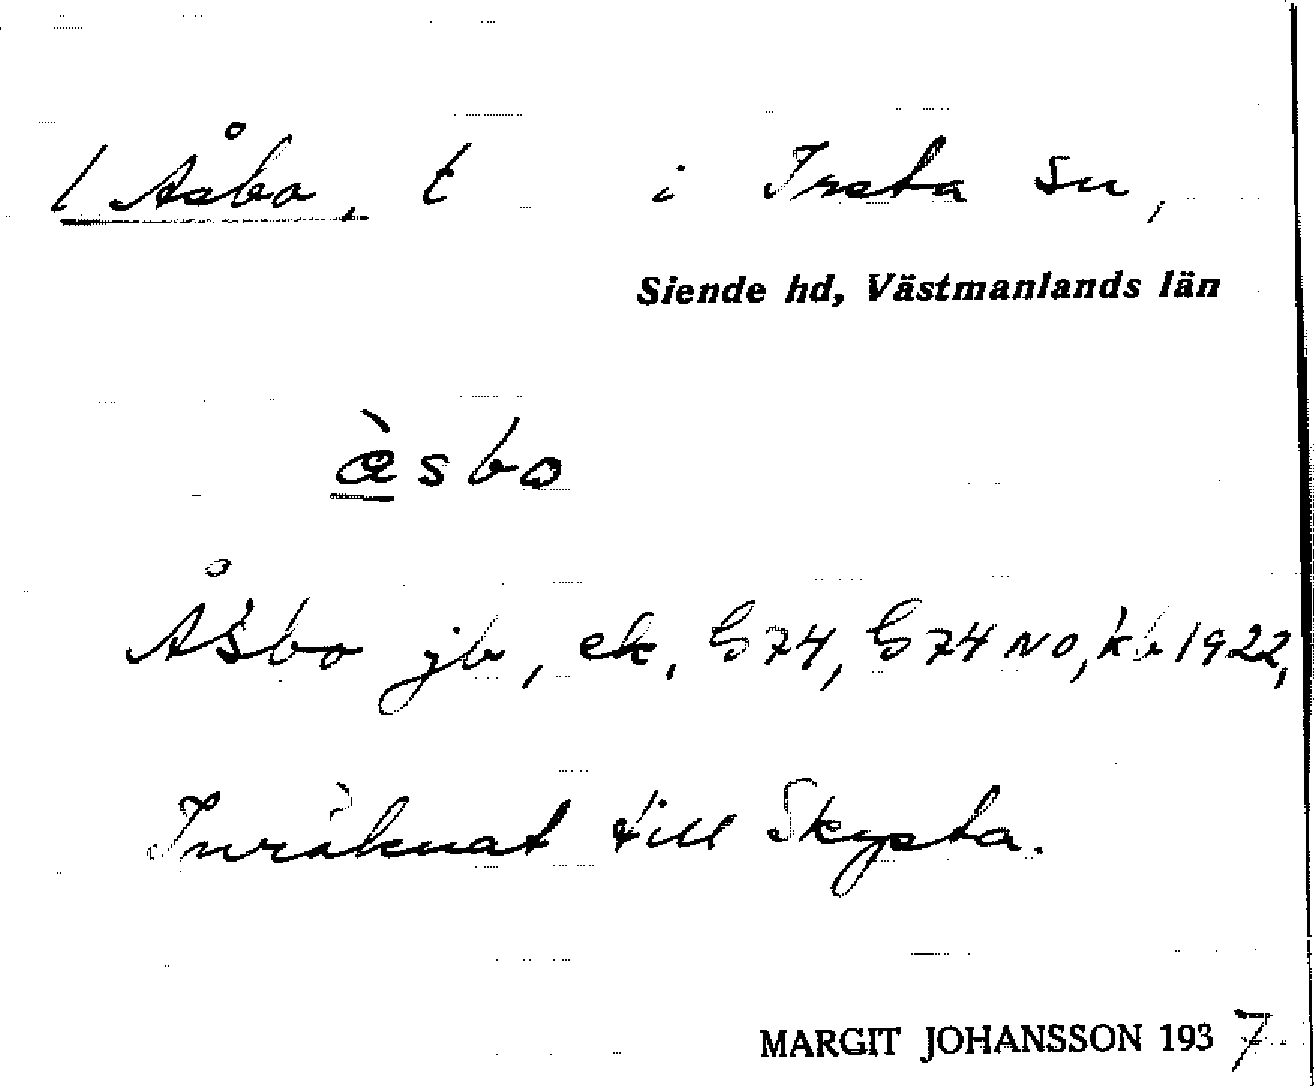 / Åsbo, t i Irsta sn,
Siende hd, Västmanlands län
àsbo
Åsbo jb, ek, G74, G74 NO, kb 1922,
Inräknat till Skysta.
MARGIT JOHANSSON 1937